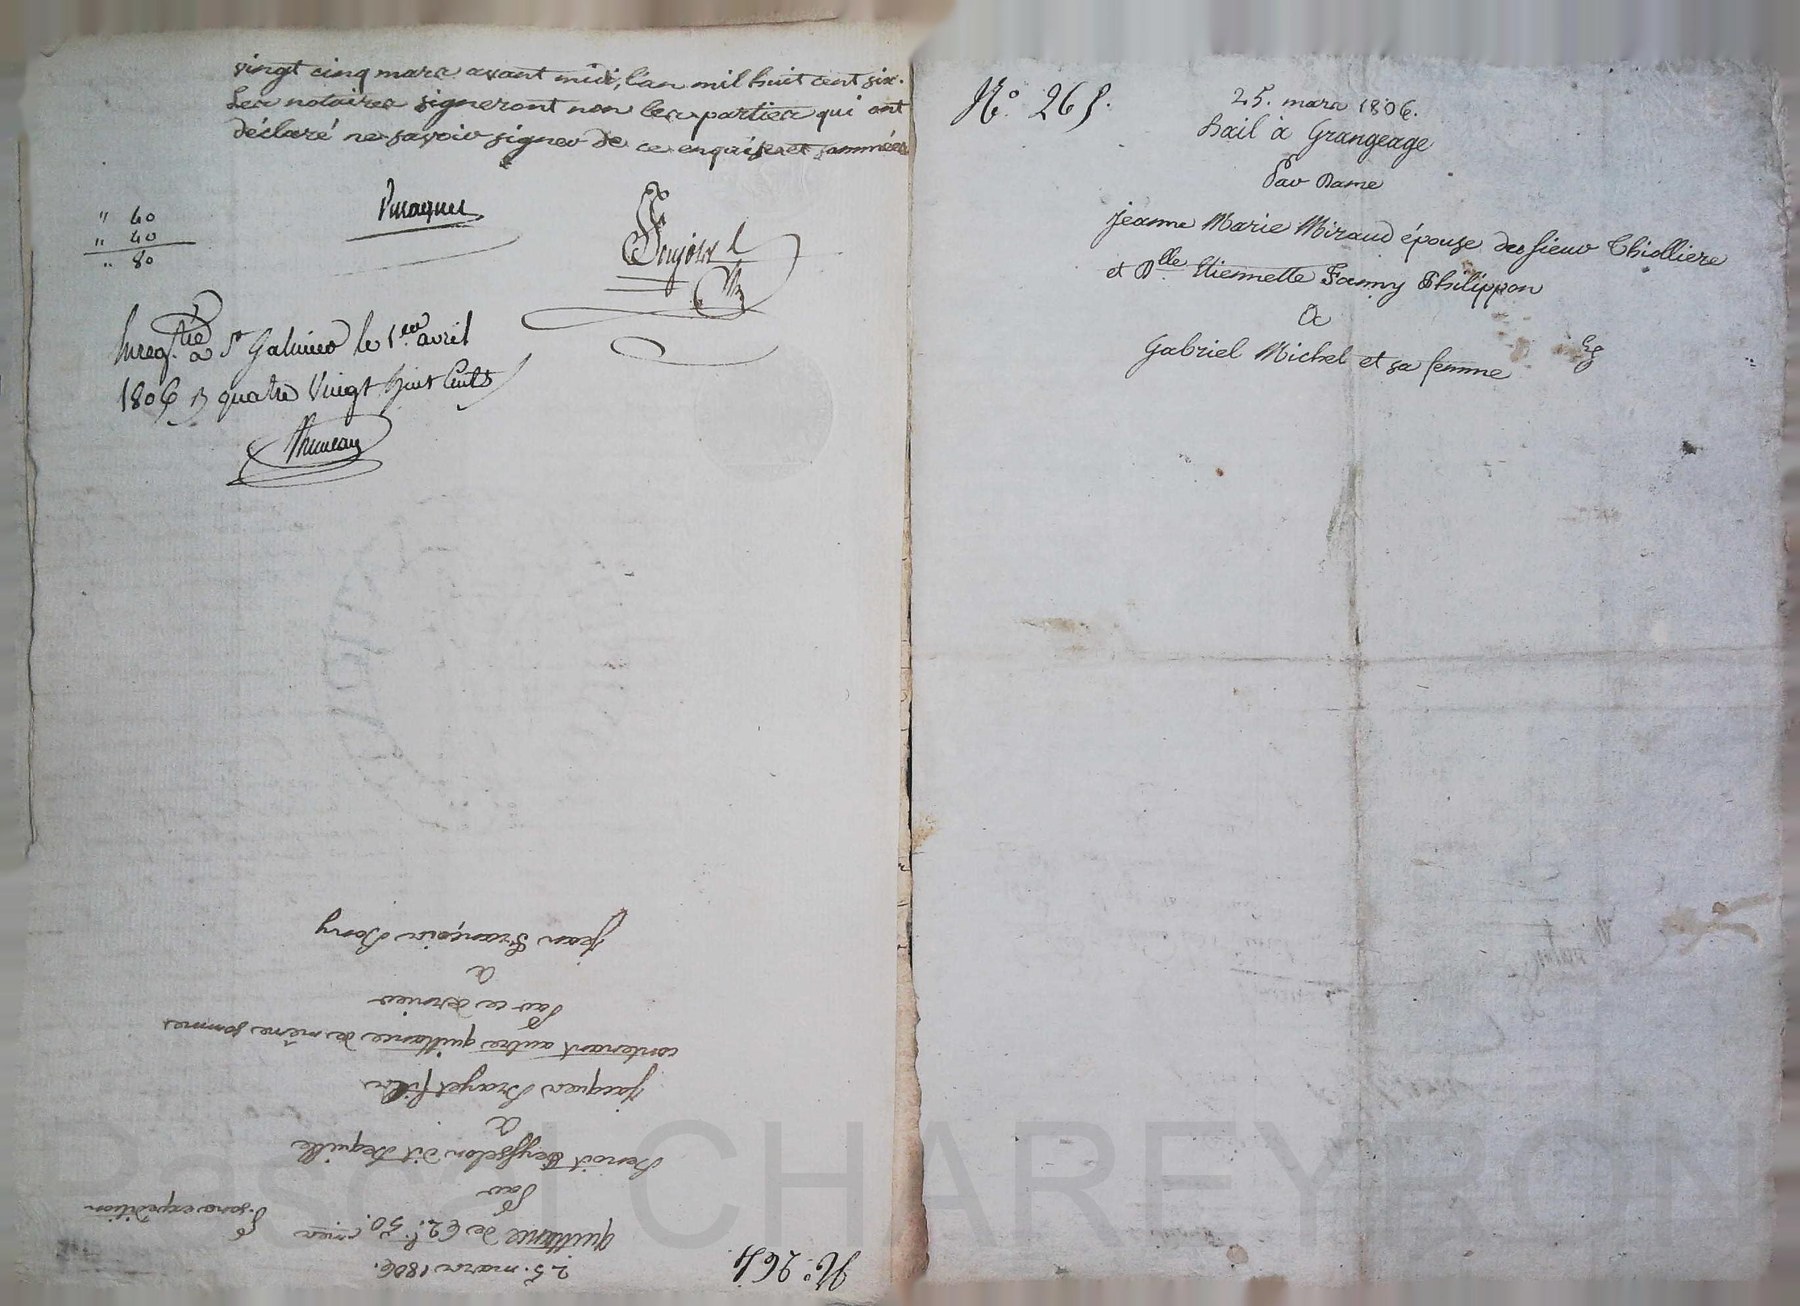 vingt cinq mars avant midi, l'an mil huit cent six.
Les notaires signeront non les parties qui ont
déclaré ne savoir signer de ce enquises et sommées
" 40
" 40
" 80
Enregtré à St Galmier le 1er avril
1806 R quatre Vingt huit Cents
N° 264
25. mars 1806.
quittance de 62l. 50.
P. sans expédition
Par
Benoit Teysselon dit Bequille
à
Jacques Brayet fils
contenant autre quittance de même somme
Par ce dernier
à
Jean François Bony
N° 265.
25. mars 1806.
Bail à Grangeage
Par Dame
Jeanne Marie Miraud épouse du sieur Thiolliere
et Dlle Etiennette Fanny Philippon
A
Gabriel Michel et sa femme
Pascal CHAREYRON